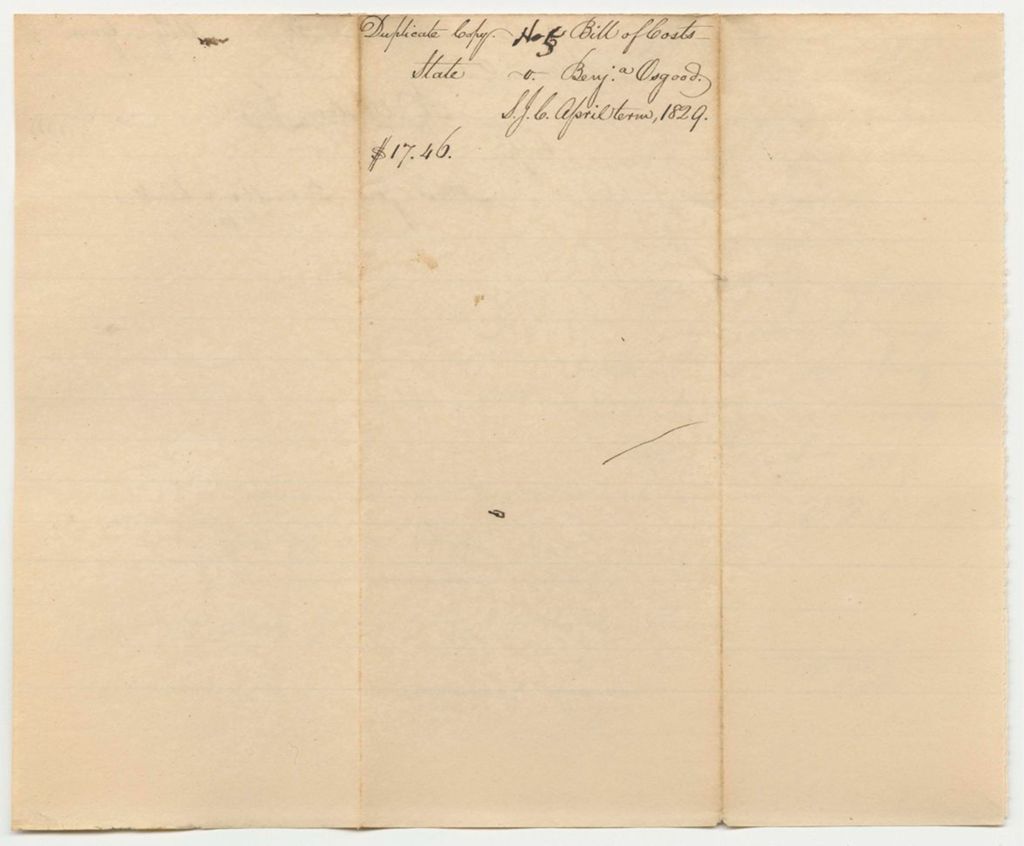 Duplicate Copy. No 5 Bill of Costs
State v. Benj.a Osgood.
S.J.C. April term, 1829.
$17.46.